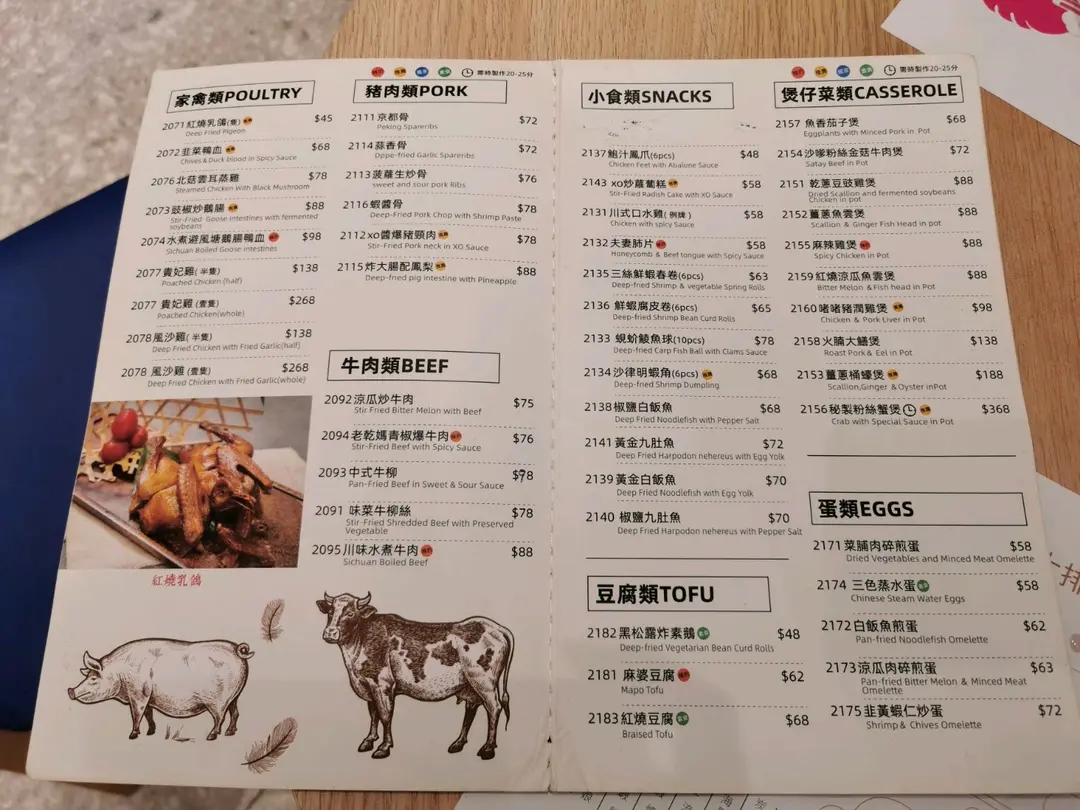 家禽類POULTRY
2071紅燒乳鴿(隻) $45
Deep Fried Pigeon
2072韭菜鴨血 $68
Chives & Duck blood in Spicy Sauce
2076北菇雲耳蒸雞 $78
Steamed Chicken With Black Mushroom
2073豉椒炒鵝腸 $88
Stir-Fried Goose Intestines with fermented
soybeans
2074水煮避風塘鵝腸鴨血 $98
Sichuan Boiled Goose intestines
2077貴妃雞(半隻) $138
Poached Chicken (half)
2077 貴妃雞(壹隻) $268
Poached Chicken(whole)
2078風沙雞(半隻) $138
Deep Fried Chicken with Fried Garlic(half)
2078 風沙雞(壹隻) $268
Deep Fried Chicken with Fried Garlic(whole)
紅燒乳鴿
需時製作20-25分
豬肉類PORK
2111京都骨 $72
Peking Spareribs
2114蒜香骨 $72
Dppe-fried Garlic Spareribs
2113菠蘿生炒骨 $76
sweet and sour pork Ribs
2116蝦醬骨 $78
Deep-Fried Pork Chop with Shrimp Paste
2112xo醬爆豬頸肉 $78
Stir-Fried Pork neck in XO Sauce
2115炸大腸配鳳梨 $88
Deep-fned pig intestine with Pineapple
牛肉類BEEF
2092涼瓜炒牛肉 $75
Stir Fried Bitter Melon with Beef
2094老乾媽青椒爆牛肉 $76
Stir-Fried Beef with Spicy Sauce
2093中式牛柳 $78
Pan-Fried Beef in Sweet & Sour Sauce
2091 味菜牛柳絲 $78
Stir-Fried Shredded Beef with Preserved
Vegetable
2095川味水煮牛肉 $88
Sichuan Boiled Beef
小食類SNACKS
2137鮑汁鳳爪(6pcs) $48
Chicken Feet with Abalone Sauce
2143 xo炒蘿蔔糕 $58
Stir-Fried Radish Cake with XO Sauce
2131川式口水雞(例牌) $58
Chicken with spicy Sauce
2132夫妻肺片 $58
Honeycomb & Beef tongue with Spicy Sauce
2135三絲鮮蝦春卷(6pcs) $63
Deep-fried Shrimp & vegetable Spring Rolls
2136 鮮蝦腐皮卷(6pcs) $65
Deep-fried Shrimp Bean Curd Rolls
2133 蜆蚧鯪魚球(10pcs) $78
Deep-fried Carp Fish Ball with Clams Sauce
2134沙律明蝦角(6pcs) $68
Deep-fried Shrimp Dumpling
2138椒鹽白飯魚 $68
Deep Fried Noodlefish with Pepper Salt
2141 黃金九肚魚 $72
Deep Fried Harpodon nehereus with Egg Yolk
2139黃金白飯魚 $70
Deep Fried Noodlefish with Egg Yolk
2140 椒鹽九肚魚 $70
Deep Fried Harpodon nehereus with Pepper Salt
豆腐類TOFU
2182黑松露炸素鵝 $48
Deep-fried Vegetarian Bean Curd Rolls
2181 麻婆豆腐 $62
Mapo Tofu
2183紅燒豆腐 $68
Braised Tofu
需時製作20-25分
煲仔菜類CASSEROLE
2157 魚香茄子煲 $68
Eggplants with Minced Pork in Pot
2154沙嗲粉絲金菇牛肉煲 $72
Satay Beef in Pot
2151 乾蔥豆豉雞煲 $88
Dried Scallion and fermented soybeans
Chicken in pot
2152薑蔥魚雲煲 $88
Scallion & Ginger Fish Head in pot
2155麻辣雞煲 $88
Spicy Chicken in Pot
2159紅燒涼瓜魚雲煲 $88
Bitter Melon & Fish head in Pot
2160啫啫豬潤雞煲 $98
Chicken & Pork Liver in Pot
2158火腩大鱔煲 $138
Roast Pork & Eel in Pot
2153薑蔥桶蠔煲 $188
Scallion,Ginger & Oyster inPot
2156秘製粉絲蟹煲 $368
Crab with Special Sauce in Pot
蛋類EGGS
2171菜脯肉碎煎蛋 $58
Dried Vegetables and Minced Meat Omelette
2174 三色蒸水蛋 $58
Chinese Steam Water Eggs
2172白飯魚煎蛋 $62
Pan-fried Noodlefish Omelette
2173涼瓜肉碎煎蛋 $63
Pan-fried Bitter Melon & Minced Meat
Omelette
2175韭黃蝦仁炒蛋 $72
Shrimp & Chives Omelette